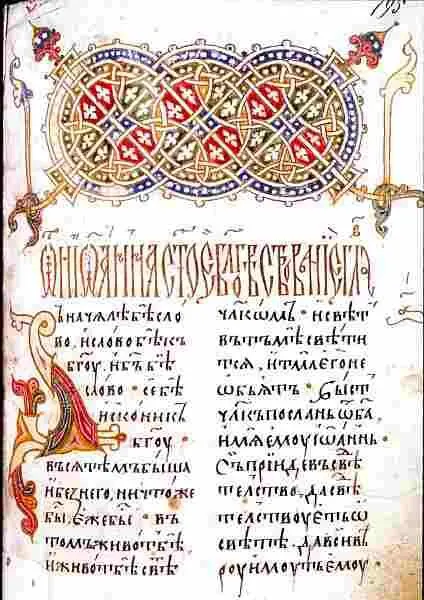 ѿ іѡанна стое блговѣствованїе
ъначалѣбѣсло
во, ислово бѣкъ
бгоу, ибъ бѣ
слово · себѣ
исконикъ
бгоу ·
въсѧтѣмъбыша
ибезнего, ничтоже
бы, ежебы · въ
томъживотъбѣ
иживотъбѣсвѣ
члкѡмъ · исвѣт
вътъмѣсвѣтит
сѧ, итмаегоне
ѡбьѧтъ · быст
члкъпосланъѿба,
имѧемоуіѡаннъ ·
съпрїидевъсвѣ
телство, дасвѣ
телствоуетьѡ
свѣтѣ, давсивѣ
роуимоутьемоу